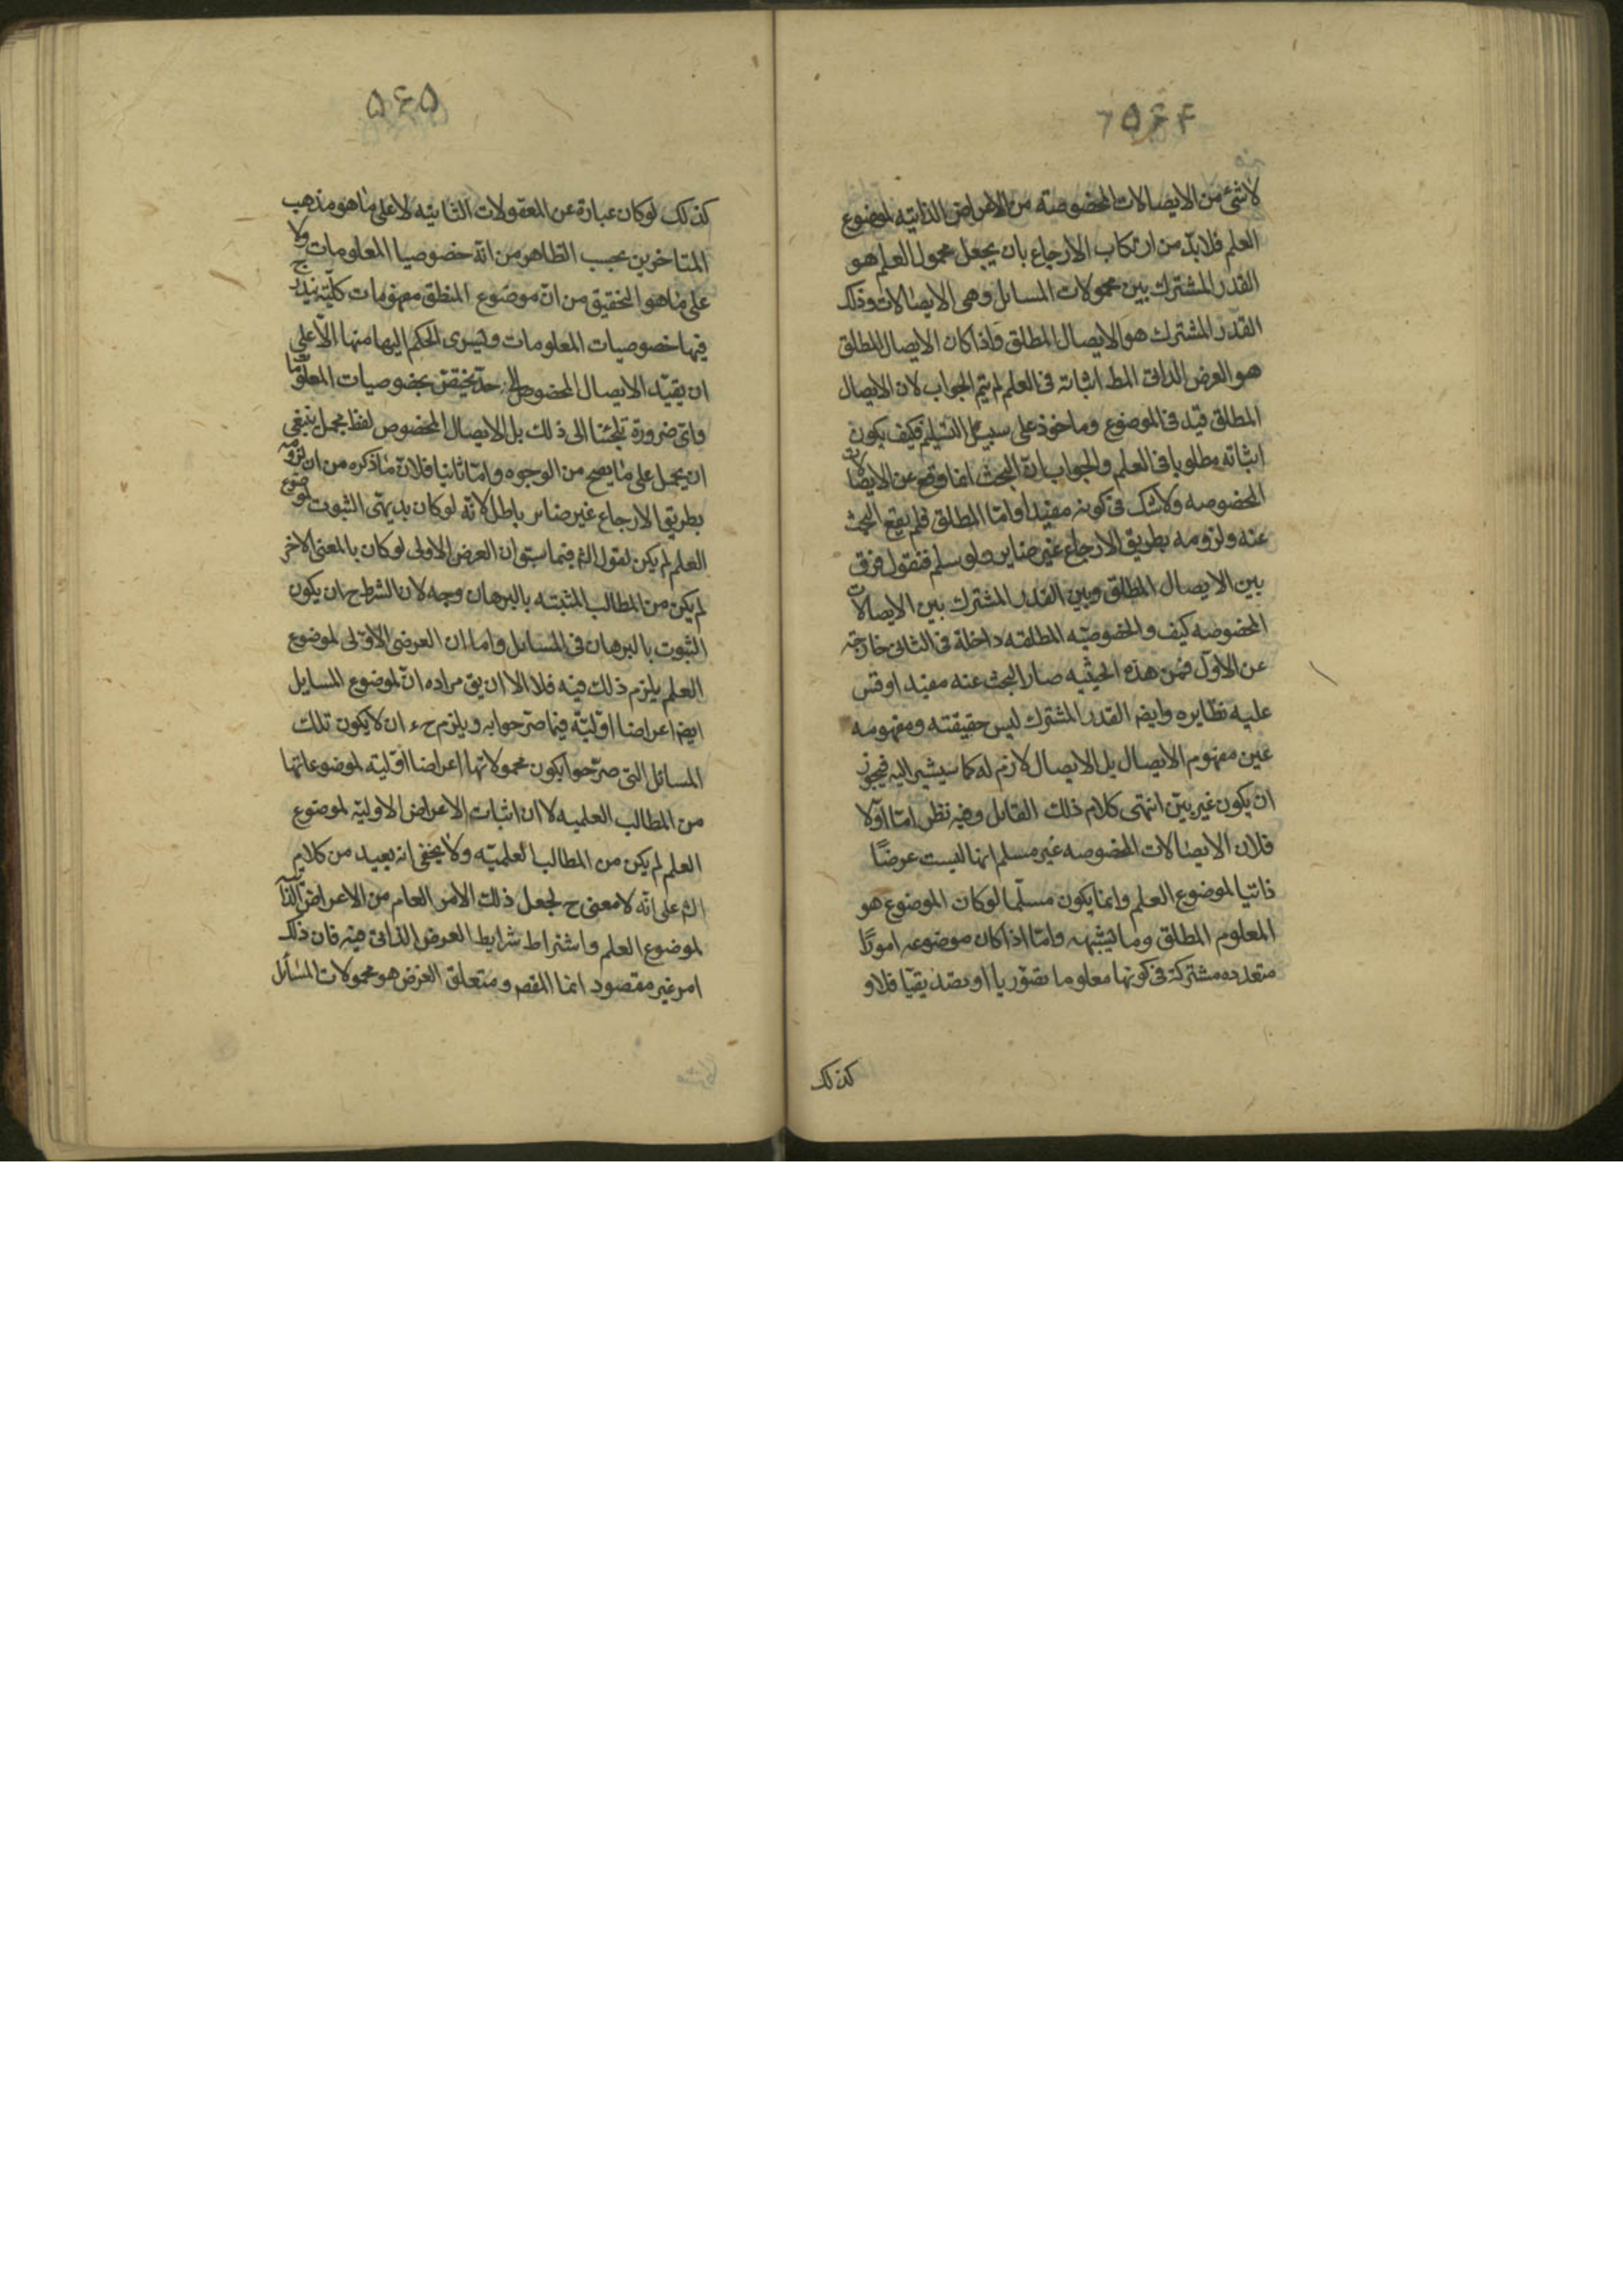 ۵۶۴
لاشئ من الايصالات المخصوصة من الاعراض الذاتيه لموضوع
العلم فلا بدّ من ارتكاب الارجاع بان يجعل محمول العلم هو
القدر المشترك بين محمولات المسائل وهى الايصالات وذلك
القدر المشترك هو الايصال المطلق واذا كان الايصال المطلق
هو العرض الذاتى المط اثباته فى العلم لم يتم الجواب لان الايصال
المطلق قيد فى الموضوع وماخوذ على سبيل التسليم فكيف يكون
اثباته مطلوبا فى العلم والجواب ان البحث انما وقع عن الايصالات
المخصوصه ولا شك فى كونه مفيدا واما المطلق فلم يقع البحث
عنه ولزومه بطريق الارجاع غير ضاير ولو سلم فنقول فرق
بين الايصال المطلق وبين القدر المشترك بين الايصالات
المخصوصه كيف والخصوصيّه المطلقه داخلة فى الثانى خارجة
عن الاول فمن هذه الحيثيه صار البحث عنه مفيدا وقس
عليه نظايره وايضا القدر المشترك ليس حقيقته ومفهومه
عين مفهوم الايصال بل الايصال لازم له كما سيشير اليه فيجوز
ان يكون غير بيّن انتهى كلام ذلك القائل وفيه نظر امّا اوّلا
فلان الايصالات المخصوصه غير مسلم انها ليست عرضًا
ذاتيا لموضوع العلم وانما يكون مسلّما لوكان الموضوع هو
المعلوم المطلق وما يشبهه وامّا اذا كان موضوعه امورًا
متعدده مشتركة فى كونها معلوما تصوّريا او تصديقيّا فلا و
كذلك
۵۶۵
كذلك لوكان عبارة عن المعقولات الثانيه لا على ما هو مذهب
المتاخرين بحسب الظاهر من انّه خصوصيا المعلومات ولا
على ما هو التحقيق من انّ موضوع المنطق مفهومات كليّة يندرج
فيها خصوصيات المعلومات وليسرى الحكم اليها منها الّا على
ان يقيّد الايصال المخصوص الى حدّ يختصّ بخصوصيات المعلوما
واىّ ضرورة تلجئنا الى ذلك بل الايصال المخصوص لفظ مجمل ينبغى
ان يحمل على ما يصح من الوجوه وامّا ثانيا فلانّ ما ذكره من ان لزومه
بطريق الارجاع غير ضاير باطل لانّه لوكان بديهىّ الثبوت لموضوع
العلم لم يكن لقول الش فيما سبق ان العرض الاولى لوكان بالمعنى الاخر
لم يكن من المطالب المثبته بالبرهان وجه لان الشرط ح ان يكون
الثبوت بالبرهان فى المسائل واما ان العرض الاوّلى لموضوع
العلم يلزم ذلك فيه فلا الا ان يق مراده انّ لموضوع المسايل
ايض اعراضا اوّليّة فيما صرّحوا به ويلزم ح ان لا يكون تلك
المسائل التى صرّحوا بكون محمولاتها اعراضا اوّلية لموضوعاتها
من المطالب العلميه لا ان اثبات الاعراض الاوليّة لموضوع
العلم لم يكن من المطالب العلميّه ولا يخفى انه بعيد من كلام
الش على انّه لا معنى ح لجعل ذلك الامر العام من الاعراض الذا
لموضوع العلم واشتراط شرايط العرض الذاتى فيه فان ذلك
امر غير مقصود انما المقص ومتعلق الغرض هو محمولات المسائل